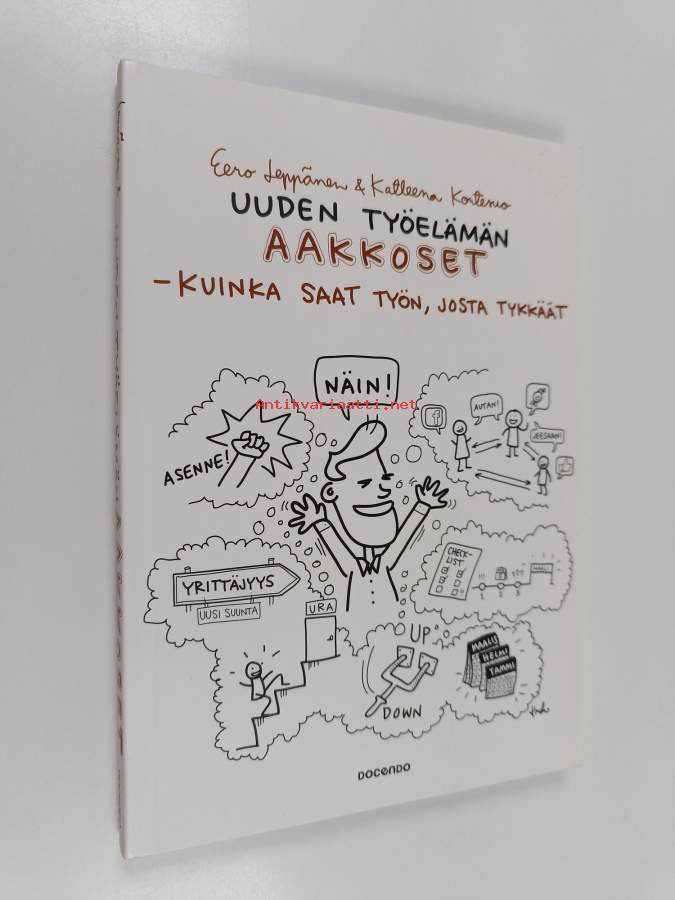 Eero Leppänen & Katleena Kortesuo
UUDEN TYÖELÄMÄN
AAKKOSET
– KUINKA SAAT TYÖN, JOSTA TYKKÄÄT
NÄIN!
Antikvariaatti.net
ASENNE!
AUTAN!
JEESAAN!
f
CHECK-
LIST
MAALI
1 2 3
YRITTÄJYYS
UUSI SUUNTA
URA
UP
DOWN
MAALIS
HELMI
TAMMI
DOCENDO